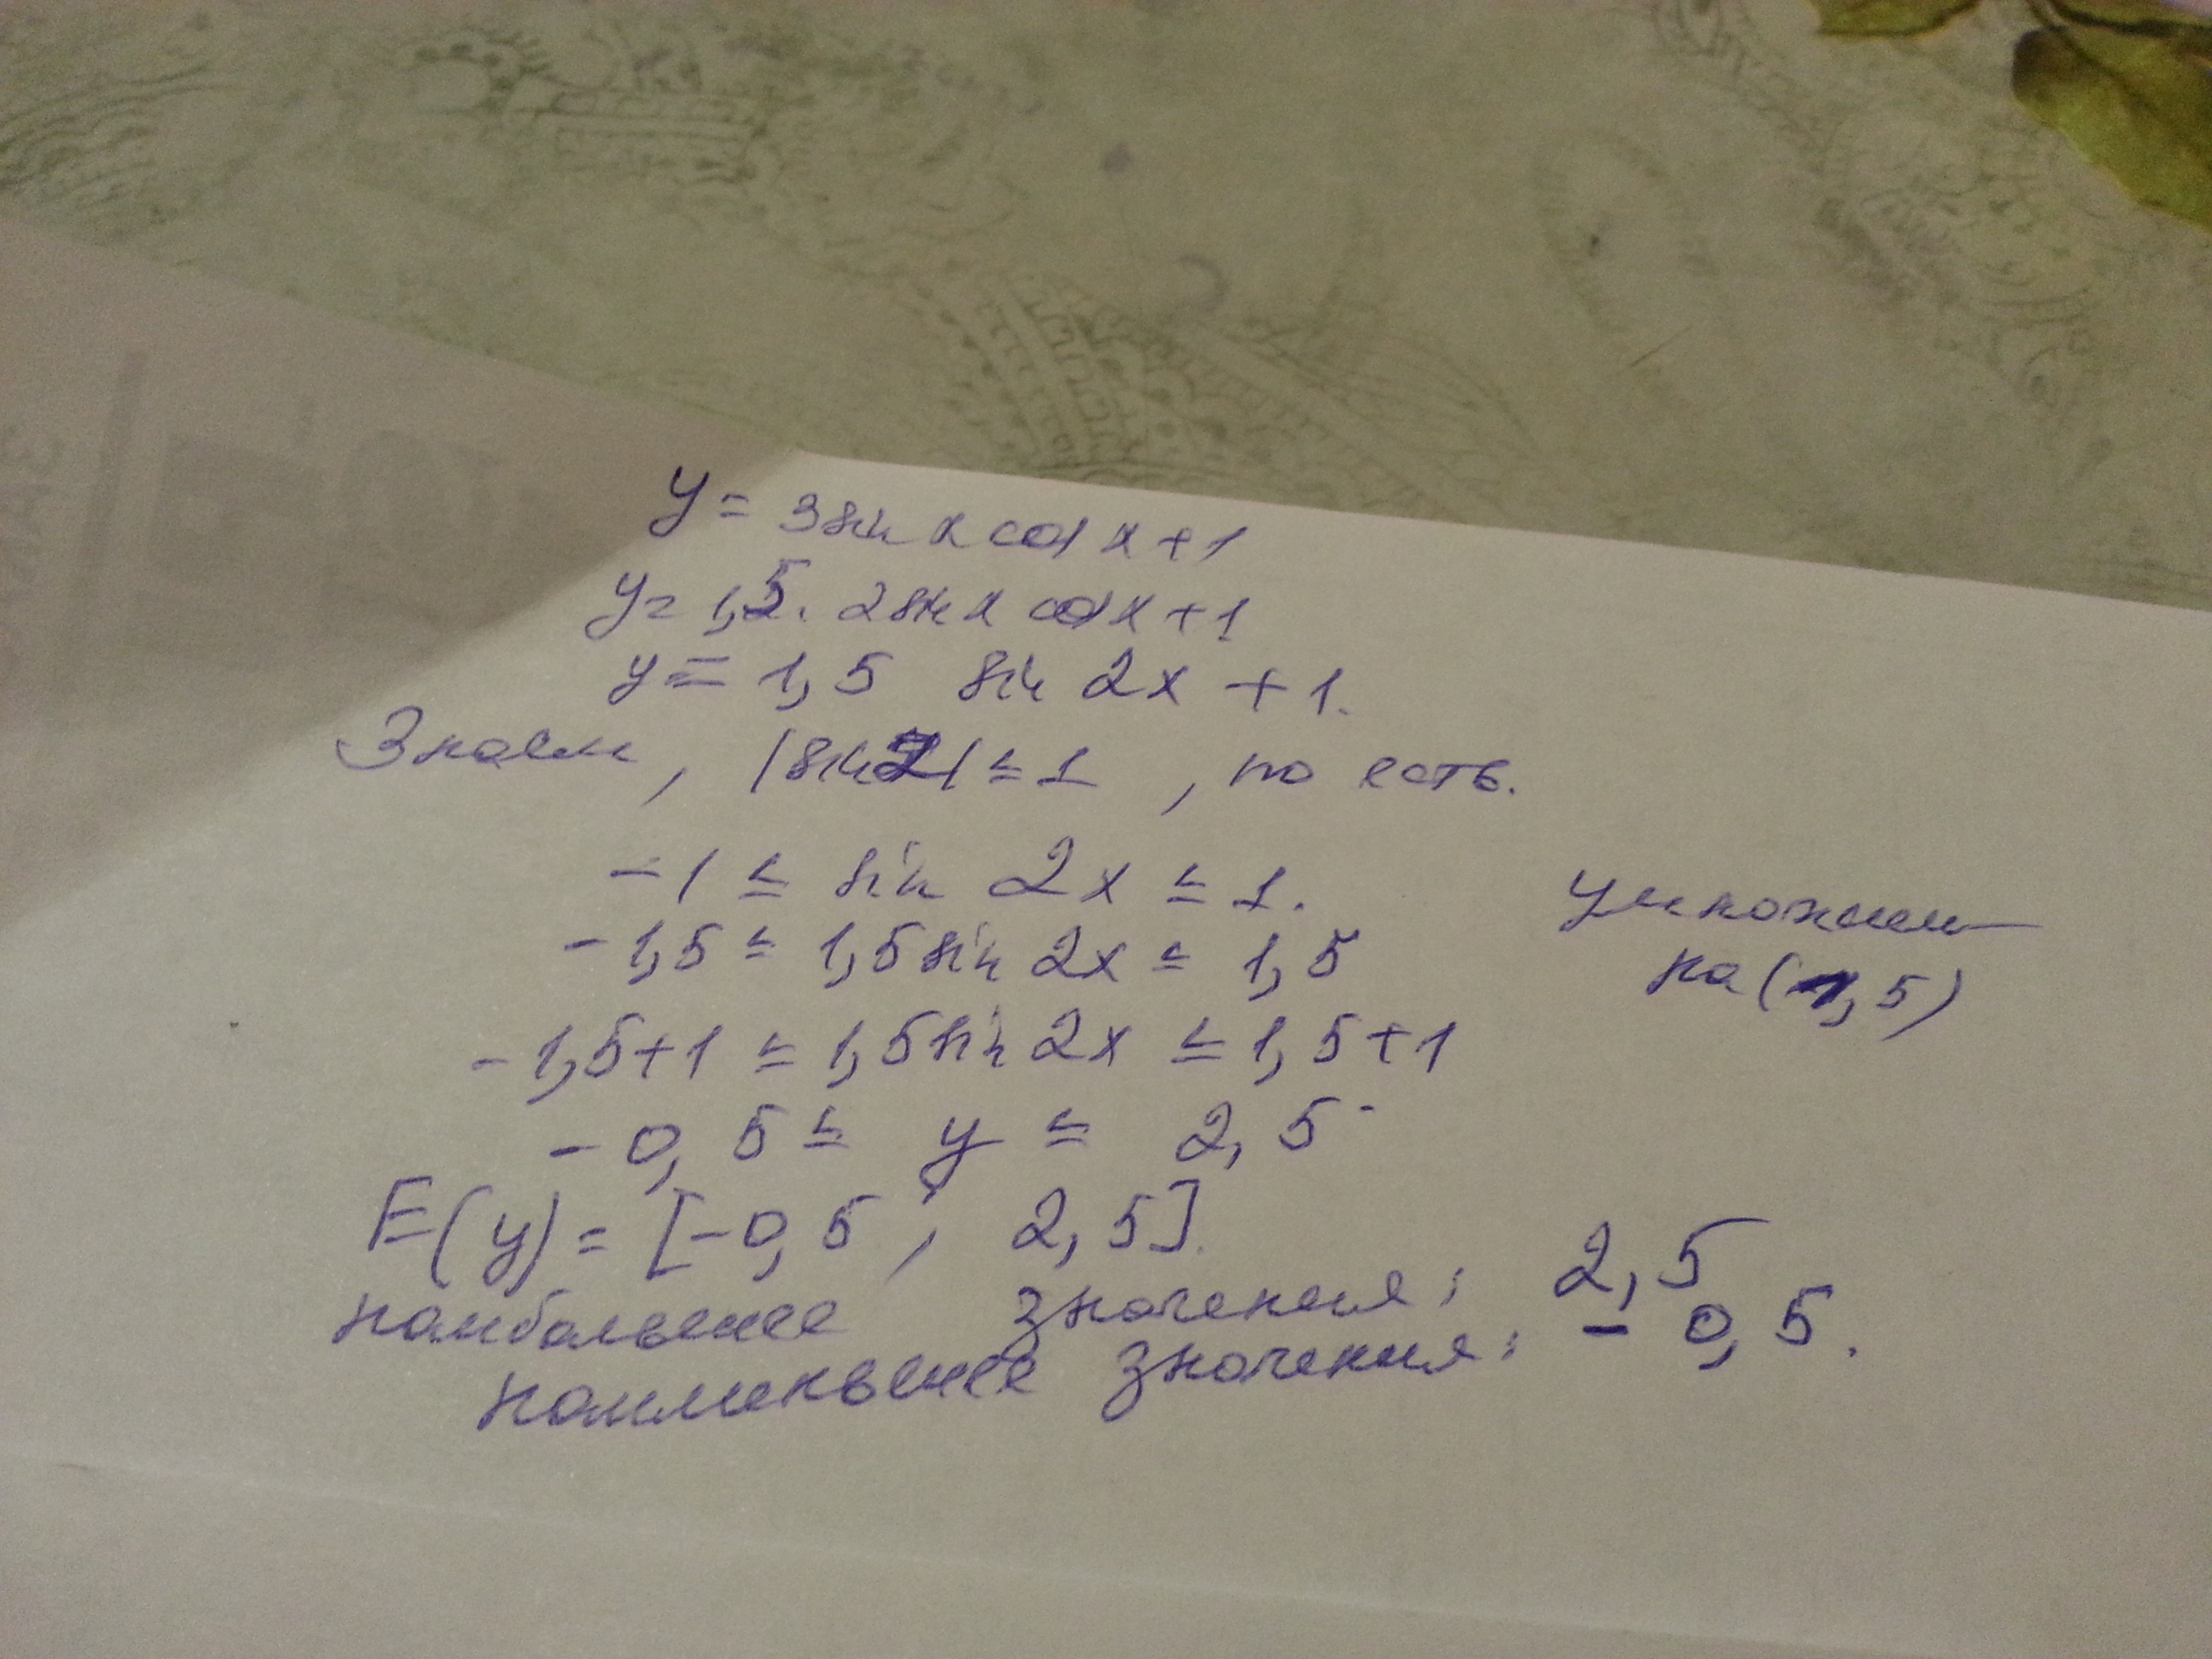 y = 3 sin x cos x + 1
y = 1,5 · 2 sin x cos x + 1
y = 1,5 sin 2x + 1.
Знаем, |sin 2| ≤ 1, то есть.
-1 ≤ sin 2x ≤ 1.
умножим
-1,5 ≤ 1,5 sin 2x ≤ 1,5
на (1,5)
-1,5+1 ≤ 1,5 sin 2x ≤ 1,5+1
-0,5 ≤ y ≤ 2,5
E(y) = [-0,5 ; 2,5].
наибольшее значения: 2,5
наименьшее значения: -0,5.